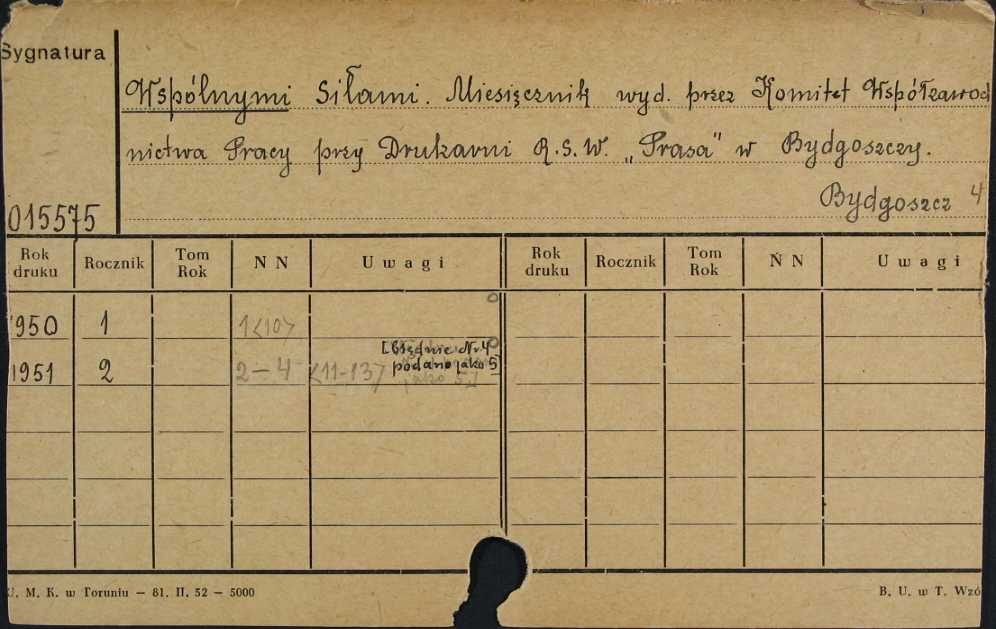 Sygnatura
Wspólnymi Siłami. Miesięcznik wyd. przez Komitet Współzawod
nictwa Pracy przy Drukarni R.S.W. „Prasa" w Bydgoszczy.
015575
Bydgoszcz 4
Rok druku Rocznik Tom Rok N N Uwagi Rok druku Rocznik Tom Rok N N Uwagi
1950 1 1<10>
1951 2 2-4 <11-13> [Błędnie Nr 4
podano jako 5]
U. M. K. w Toruniu — 81. II. 52 — 5000
B. U. w T. Wzó